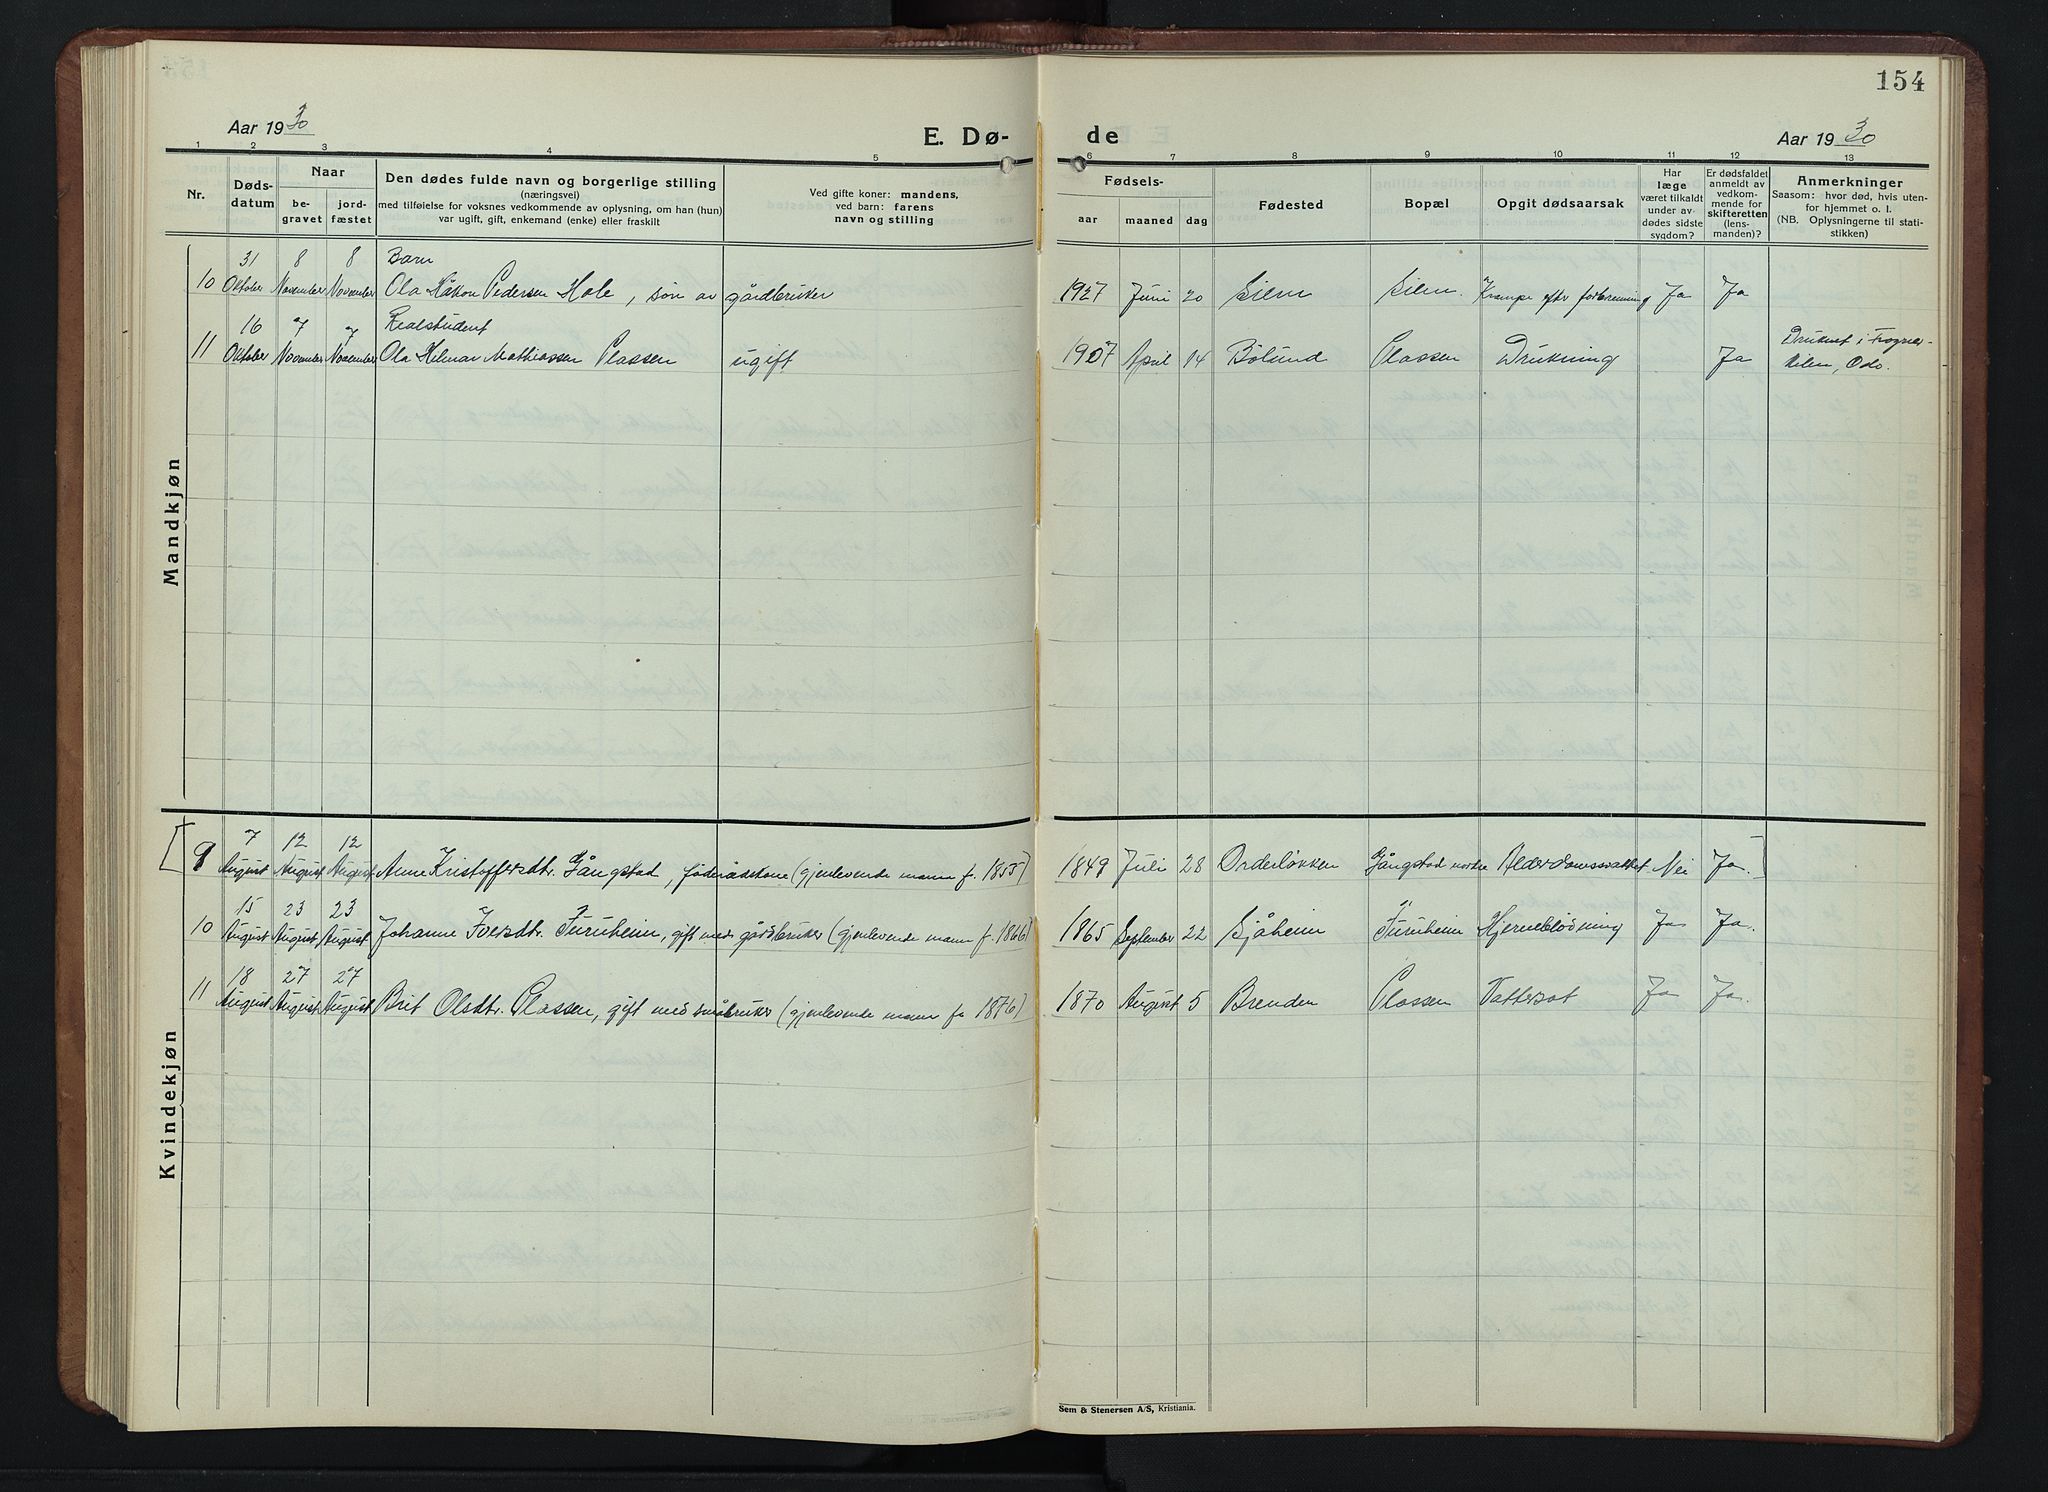 154
Aar 1930
E. Dø-
de
Aar 1930
1 2 3 4 5 6 7 8 9 10 11 12 13
Nr.
Døds-
datum
Naar
be-
gravet
jord-
fæstet
Den dødes fulde navn og borgerlige stilling
(næringsvei)
med tilføielse for voksnes vedkommende av oplysning, om han (hun)
var ugift, gift, enkemand (enke) eller fraskilt
Ved gifte koner: mandens,
ved barn: farens
navn og stilling
Fødsels-
aar
maaned
dag
Fødested
Bopæl
Opgit dødsaarsak
Har
læge
været tilkaldt
under av-
dødes sidste
sygdom?
Er dødsfaldet
anmeldt av
vedkom-
mende for
skifteretten
(lens-
manden)?
Anmerkninger
Saasom: hvor død, hvis uten-
for hjemmet o. l.
(NB. Oplysningerne til stati-
stikken)
Mandkjøn
31 8 8 Barn
10 Oktober November November Ola Håkon Pedersen Hole, søn av gårdbruker 1927 Juni 20 Silem Silem Krampe efter forbrenning Ja Ja
16 7 7 Realstudent
11 Oktober November November Ola Hilmar Mathiassen Plassen ugift 1907 April 14 Bölund Plassen Drukning Ja
Druknet i Frogner-
kilen, Oslo.
Kvindekjøn
7 12 12
9 August August August Anne Kristoffersdtr. Gångstad, føderådskone (gjenlevende mann f. 1855) 1849 Juli 28 Orderløkken Gångstad nordre Alderdomssvakhet Nei Ja.
15 23 23
10 August August August Johanne Iversdtr. Furuheim, gift med gårdbruker (gjenlevende mann f. 1866) 1865 September 22 Sjåheim Furuheim Hjerneblødning Ja Ja.
18 27 27
11 August August August Brit Olsdtr. Plassen, gift med småbruker (gjenlevende mann f. 1876) 1870 August 5 Brenden Plassen Ja Ja.
Sem & Stenersen A/S, Kristiania.